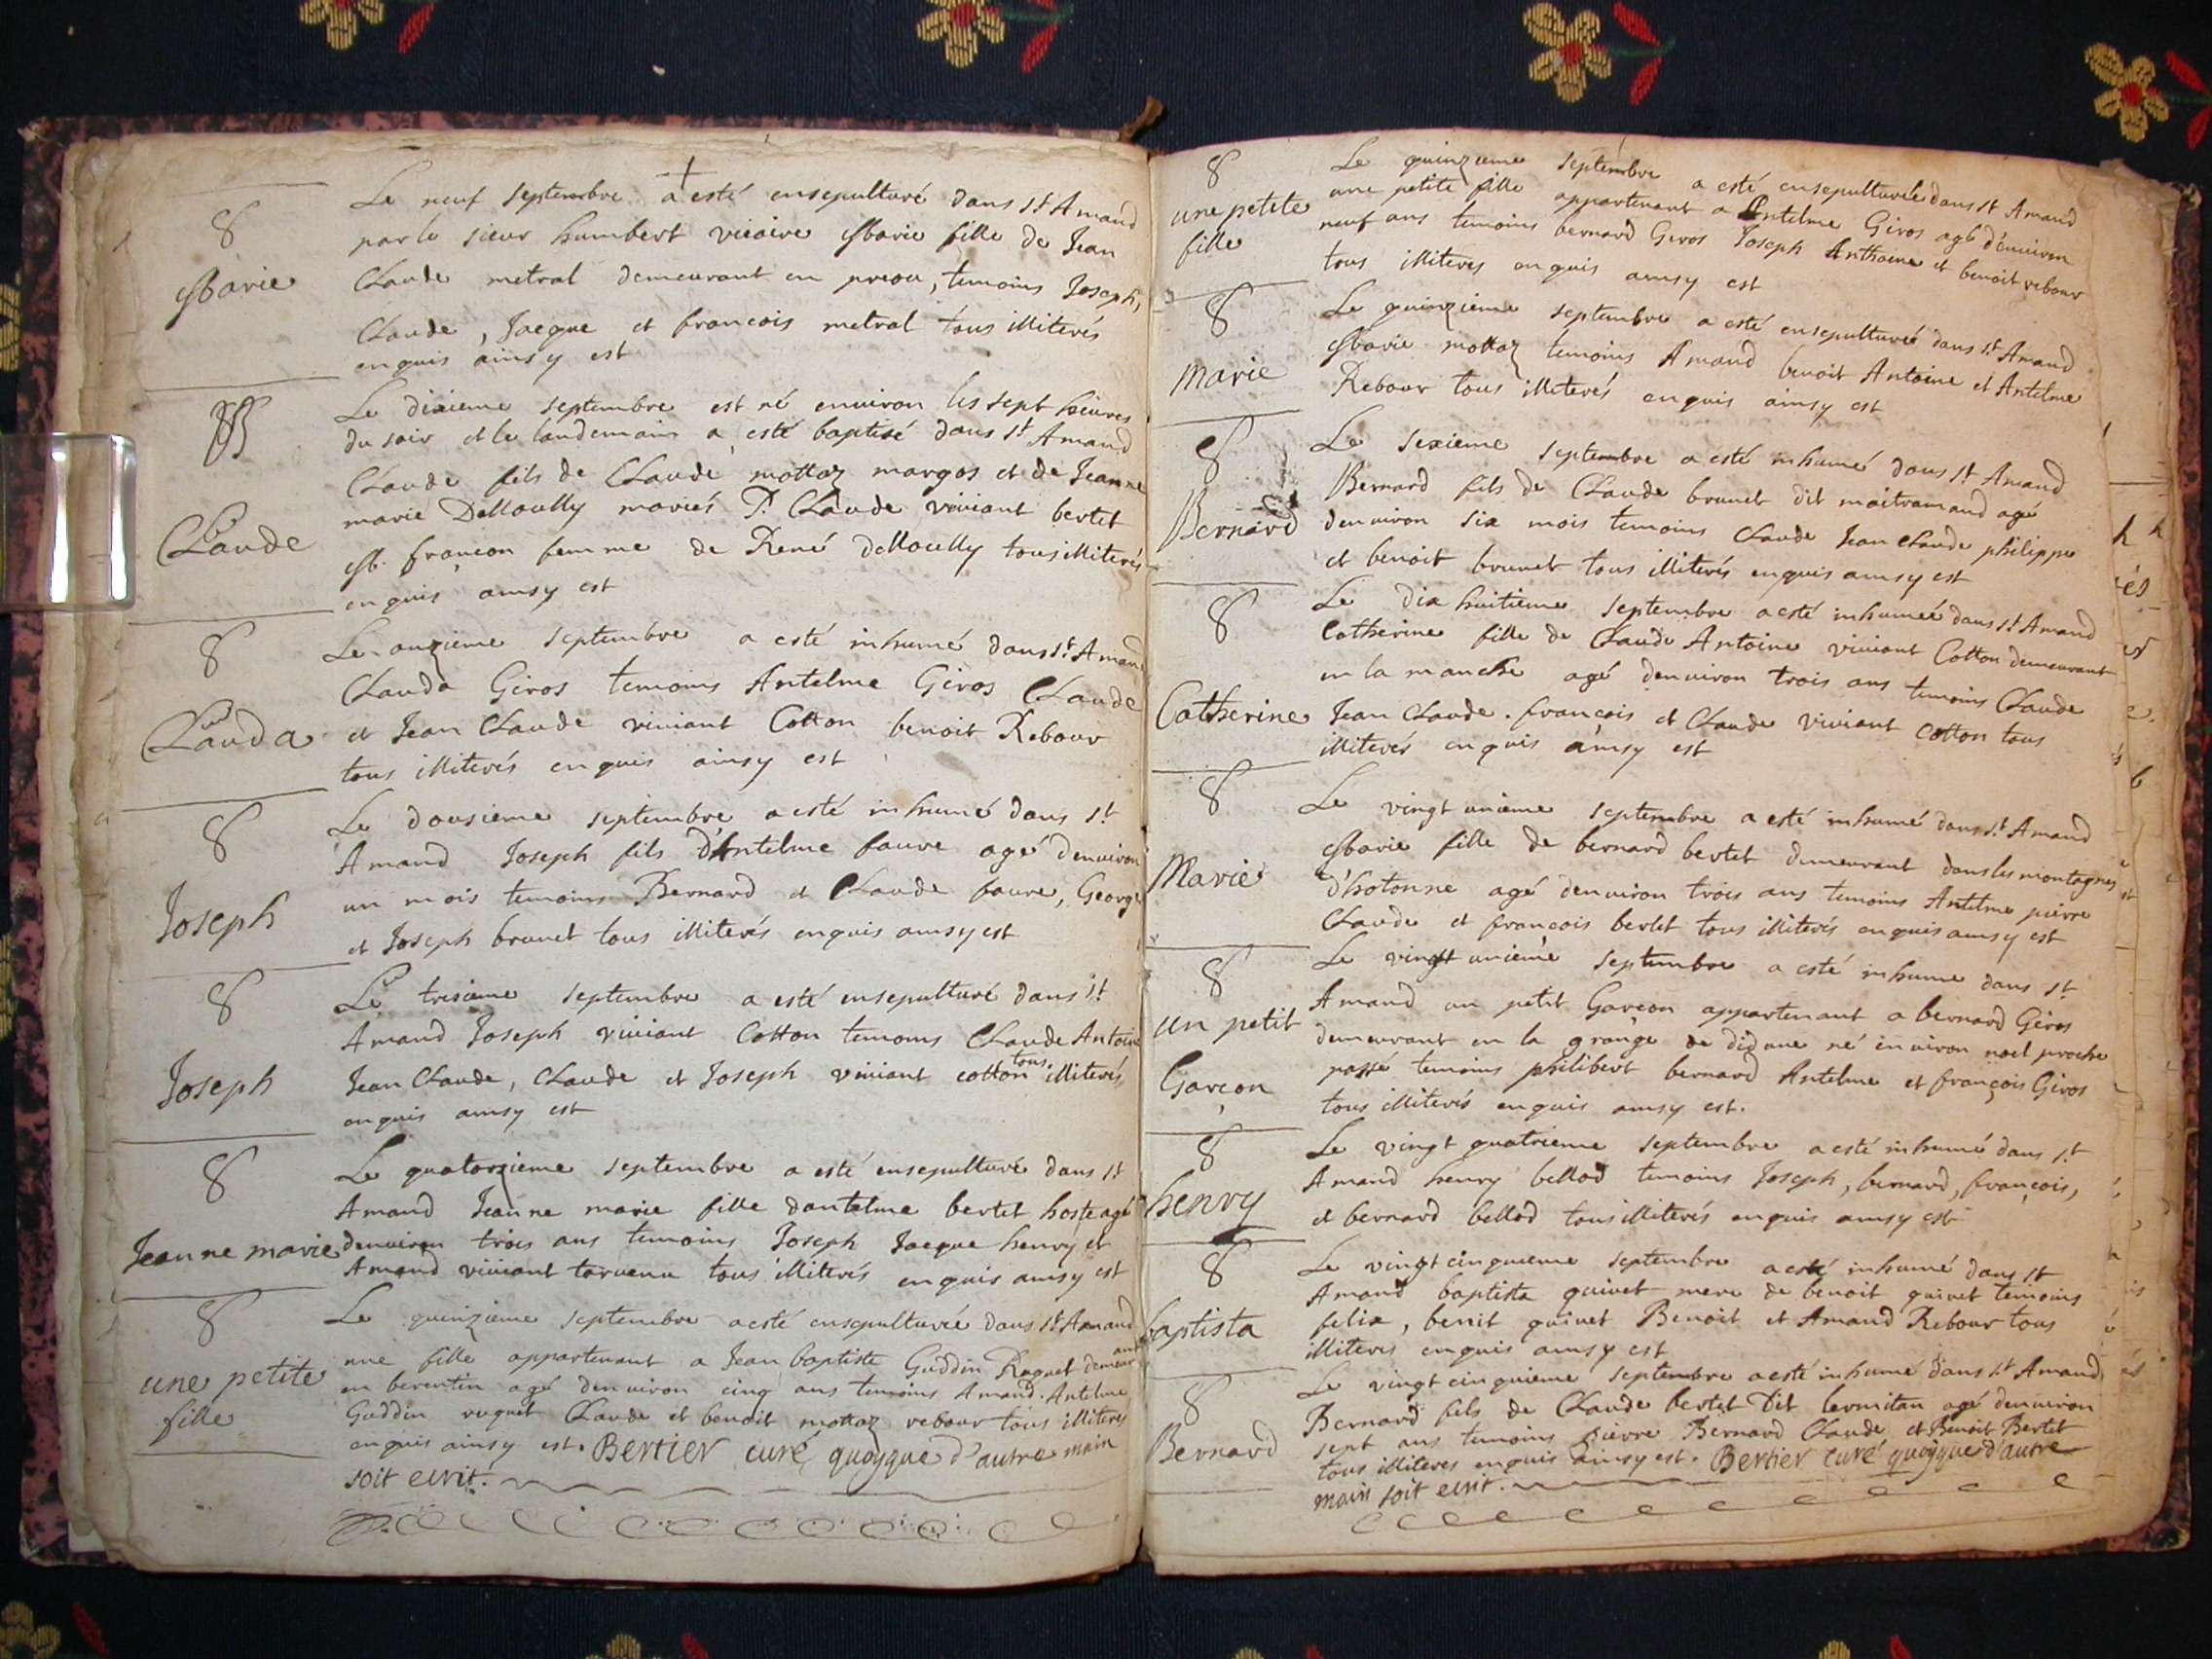 Le neuf septembre a esté ensepulturé dans st Amand
8
par le sieur humbert vicaire Marie fille de Jean
Marie
Claude metral demeurant en preou, temoins Joseph,
Claude, Jacque et francois metral tous illiterés
enquis ainsy est
B
Le dixieme septembre est né environ les sept heures
du soir et le landemain a esté baptisé dans st Amand
Claude fils de Claude mottaz margos et de Jeanne
Claude
marie Demoully mariés P. Claude viviant bertet
M. françon femme de René demoully tous illiterés
enquis ainsy est
8
Le onzieme septembre a esté inhumé dans st Aman
Clauda Giros temoins Antelme Giros Claude
Clauda
et Jean Claude viviant Cotton benoit Rebour
tous illiterés enquis ainsy est
8
Le dousieme septembre a esté inhumé dans st
Amand Joseph fils d'Antelme favre agé denviron
Joseph
un mois temoins Bernard et Claude favre, George
et Joseph brunet tous illiterés enquis ainsy est
8
Le tresieme septembre a esté ensepulturé dans st
Amand Joseph viviant Cotton temoins Claude Antoine
Joseph
Jean Claude, Claude et Joseph viviant cotton tous illiterés
enquis ainsy est
8
Le quatorzieme septembre a esté ensepulturé dans st
Amand Jeanne marie fille dantelme bertet hoste agé
Jeanne marie
denviron trois ans temoins Joseph Jacque henry et
Amand viviant tarvenu tous illiterés enquis ainsy est
8
Le quinzieme septembre a esté ensepulturée dans st Amand
une petite
une fille appartenant a Jean baptiste Guddin Ruguet demeurant
fille
en berentin agé denviron cinq ans temoins Amand. Antelme
Guddin ruguet Claude et benoit mottaz rebour tous illiteres
enquis ainsy est. Bertier curé quoyque d'autre main
soit ecrit.
8
Le quinzieme septembre a esté ensepulturée dans st Amand
une petite
une petite fille appartenant a Antelme Giros agé d'environ
fille
neuf ans temoins bernard Giros Joseph Anthoine et benoit rebour
tous illiteres enquis ainsy est
8
Le quinzieme septembre a esté ensepulturé dans st Amand
Marie
Marie mottaz temoins Amand benoit Antoine et Antelme
Rebour tous illiterés enquis ainsy est
8
Le sexieme septembre a esté inhumé dans st Amand
Bernard fils de Claude brunet dit maitramand agé
Bernard
denviron six mois temoins Claude Jean Claude philippe
et benoit brunet tous illiterés enquis ainsy est
8
Le dix huitieme septembre a esté inhumeé dans st Amand
Catherine fille de Claude Antoine viviant Cotton demeurant
en la manche agé denviron trois ans temoins Claude
Catherine
Jean Claude. françois et Claude viviant cotton tous
illiterés enquis ainsy est
8
Le vingt unieme septembre a esté inhumé dans st Amand
Marie
Marie fille de bernard bertet demeurant dans les montagnes
d'hotonne agé denviron trois ans temoins Antelme pierre
Claude et françois bertet tous illiterés enquis ainsy est
8
Le vingt unieme septembre a esté inhume dans st
un petit
Amand un petit Garcon appartenant a bernard Giros
demeurant en la grange de didane né environ noel proche
Garçon
passé temoins philibert bernard Antelme et françois Giros
tous illiterés enquis ainsy est.
8
Le vingt quatrieme septembre a esté inhumé dans st
henry
Amand henry bellod temoins Joseph, bernard, françois,
et bernard bellod tous illiterés enquis ainsy est
8
Le vingt cinquieme septembre a esté inhumé dans st
Amand baptista quinet mere de benoit quinet temoins
baptista
felix, benit quinet Benoit et Amand Rebour tous
illiteres enquis ainsy est
8
Le vingt cinquieme septembre a esté inhumé dans st Amand
Bernard
Bernard fils de Claude bertet Dit lermitan agé denviron
sept ans temoins pierre Bernard Claude et Benoit Bertet
tous illiteres enquis ainsy est. Bertier curé quoyque d'autre
main soit ecrit.